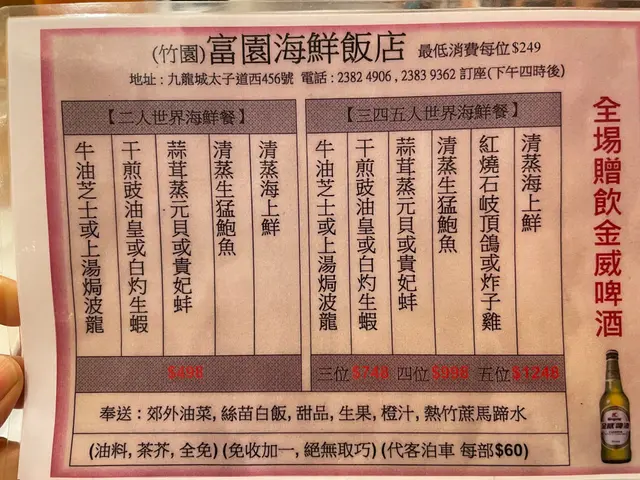 (竹園)富園海鮮飯店 最低消費每位$249
地址：九龍城太子道西456號 電話：2382 4906 , 2383 9362 訂座(下午四時後)
【二人世界海鮮餐】
清蒸海上鮮
清蒸生猛鮑魚
蒜茸蒸元貝或貴妃蚌
干煎豉油皇或白灼生蝦
牛油芝士或上湯焗波龍
$498
【三四五人世界海鮮餐】
清蒸海上鮮
紅燒石岐頂鴿或炸子雞
清蒸生猛鮑魚
蒜茸蒸元貝或貴妃蚌
干煎豉油皇或白灼生蝦
牛油芝士或上湯焗波龍
三位$748 四位$998 五位$1248
奉送：郊外油菜, 絲苗白飯, 甜品, 生果, 橙汁, 熱竹蔗馬蹄水
(油料, 茶芥, 全免) (免收加一, 絕無取巧) (代客泊車 每部$60)
全場贈飲金威啤酒